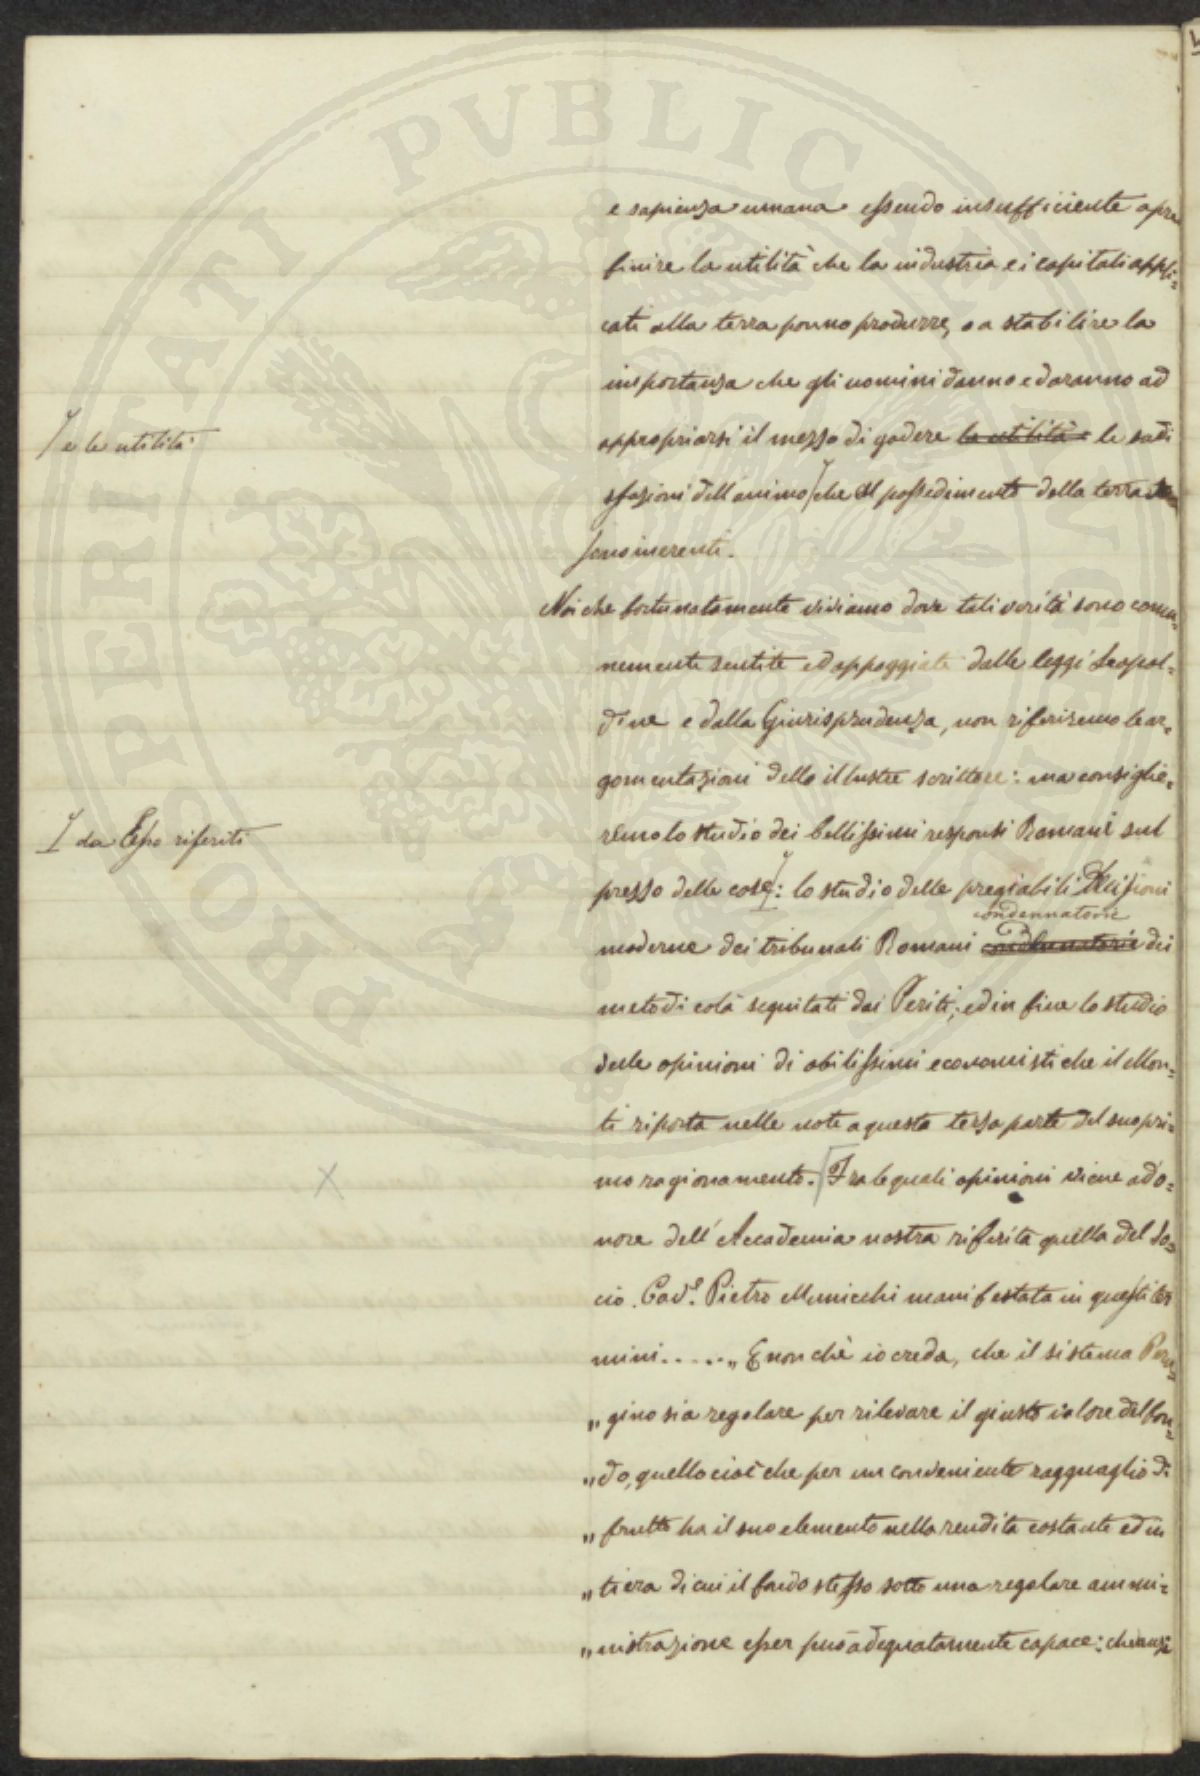 e sapienza umana essendo insufficiente a pre
finire la utilità che la industria e i capitali appli=
cati alla terra ponno produrre, o a stabilire la
importanza che gli uomini danno e daranno ad
appropriarsi il mezzo di godere la utilità e le sodi
e le utilità
sfazioni dell'animo che al possedimento della terra
sono inerenti.
Noi che fortunatamente viviamo dove tali verità sono comu=
nemente sentite ed appoggiate dalle leggi Leopol=
dine e dalla Giurisprudenza, non riferiremo le ar=
gomentazioni dello illustre scrittore: ma consiglie=
remo lo studio dei bellissimi responsi Romani sul
da Esso riferiti
prezzo delle cose: lo studio delle pregiabili Decisioni
condennatorie
moderne dei tribunali Romani condannatorie dei
metodi colà seguitati dai Periti; ed in fine lo studio
delle opinioni di abilissimi economisti che il Mon=
ti riporta nelle note a questa terza parte del suo pri=
mo ragionamento. Fra le quali opinioni viene ad o=
nore dell'Accademia nostra riferita quella del So=
cio. Cav.e Pietro Municchi manifestata in questi ter
mini..... „ E non chè io creda, che il sistema Peru=
„ gino sia regolare per rilevare il giusto valore del fon=
„ do, quello cioè che per un conveniente ragguaglio di
„ frutto ha il suo elemento nella rendita costante ed in
„ tiera di cui il fondo stesso sotto una regolare ammi=
„ nistrazione esser può adequatamente capace: che anzi
PROSPERITATI PUBLICAE AUGENDAE